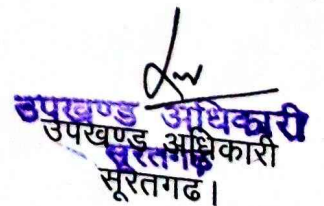 उपखण्ड अधिकारी
सूरतगढ
उपखण्ड अधिकारी
सूरतगढ।